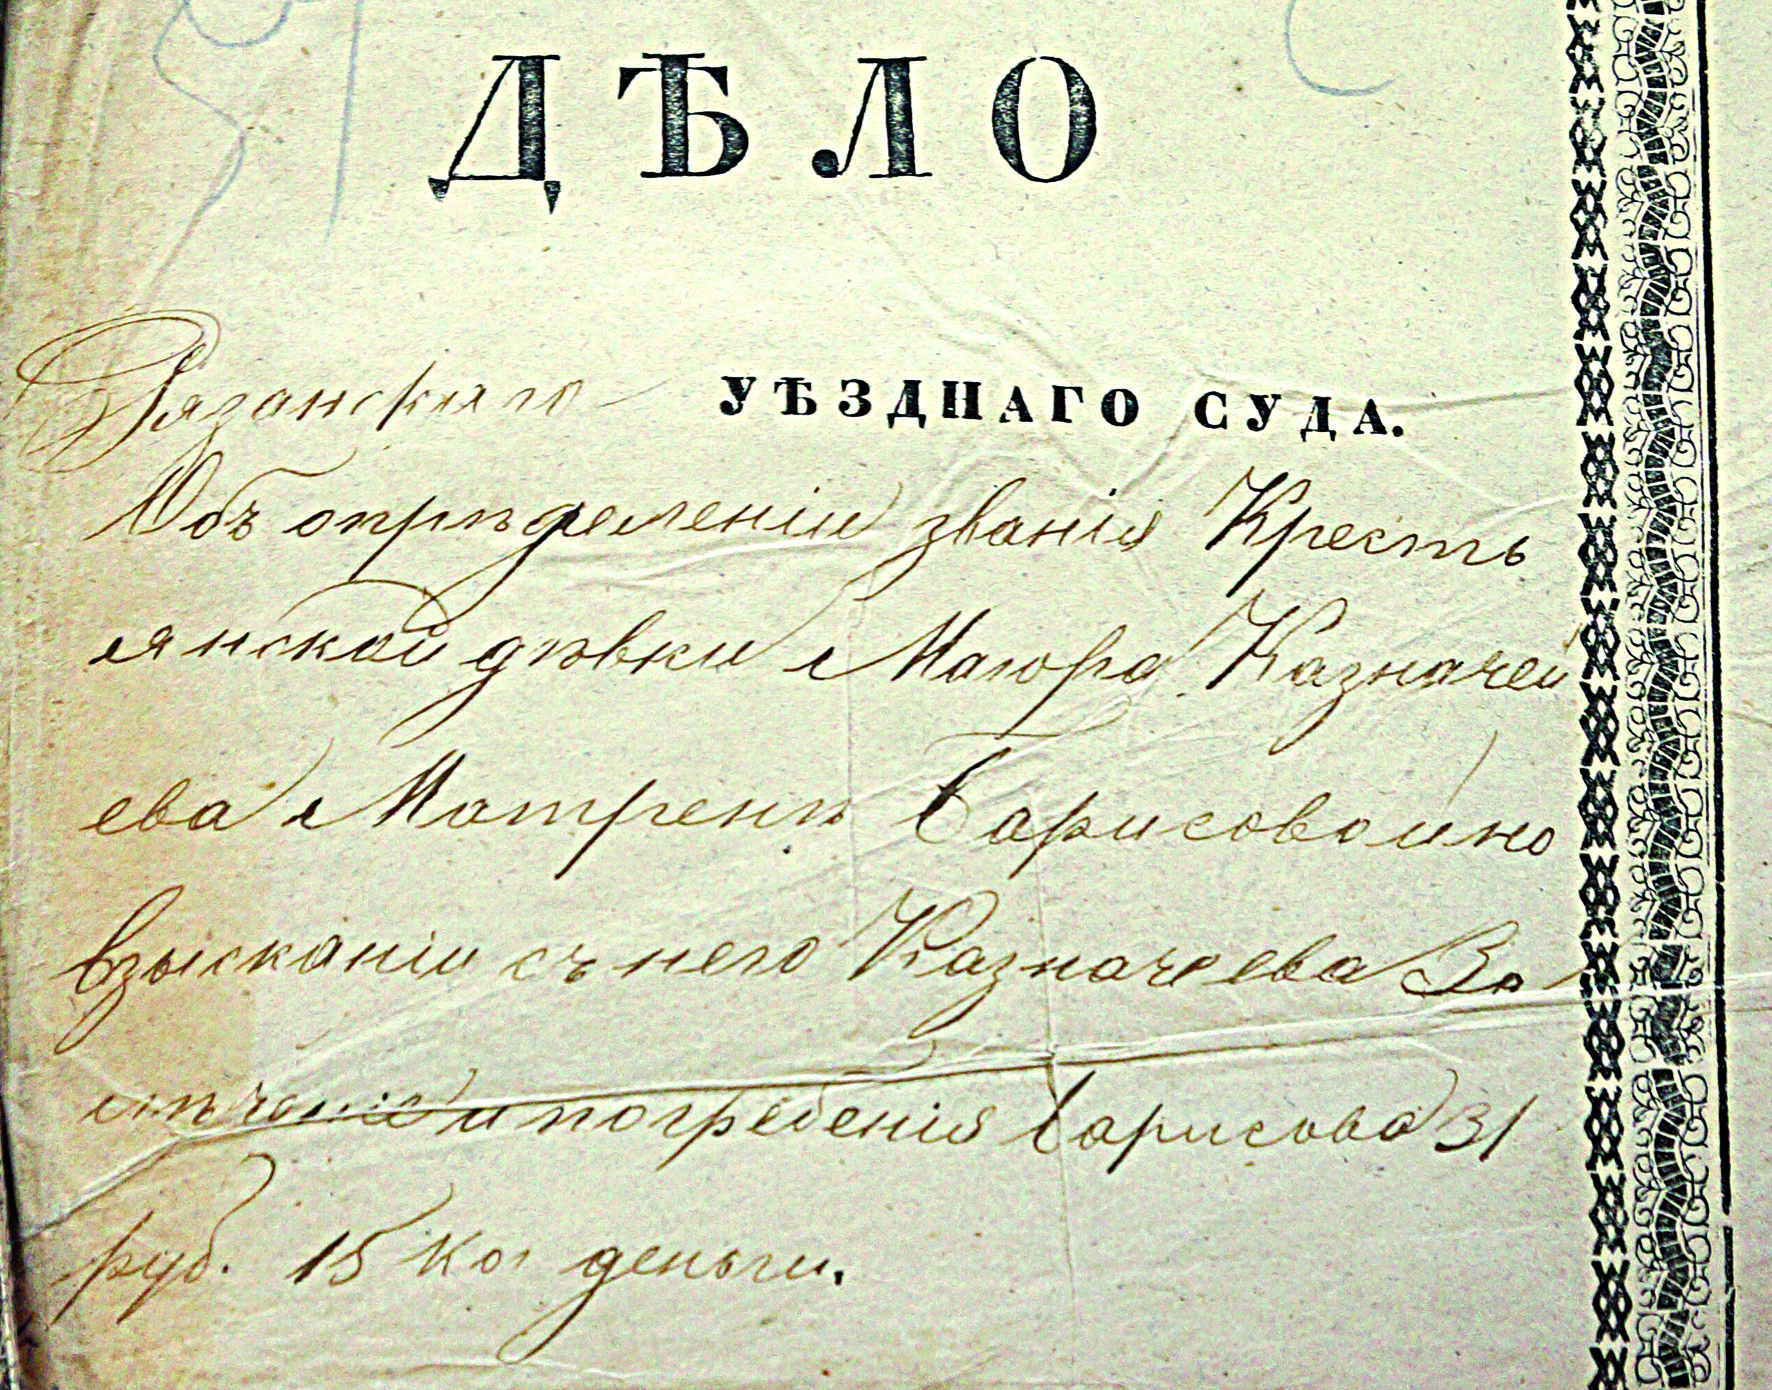 ДѢЛО
Рязанскаго УѢЗДНАГО СУДА.
Объ опрѣделеніи званія Кресть
янской дѣвки Маіора Казначей
ева Матренѣ Барисовой но
взысканіи съ него Казначеева За
лѣченіе и погребенія Барисова 31
руб. 15 ко деньги.